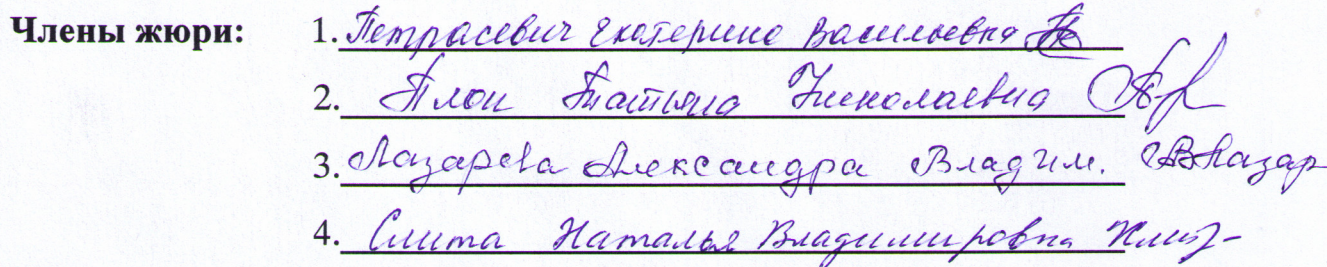 Члены жюри: 1. Петрасевич Екатерина Васильевна
2. Татьяна Николаевна
3. Лазарева Александра Владим.
4. Наталья Владимировна